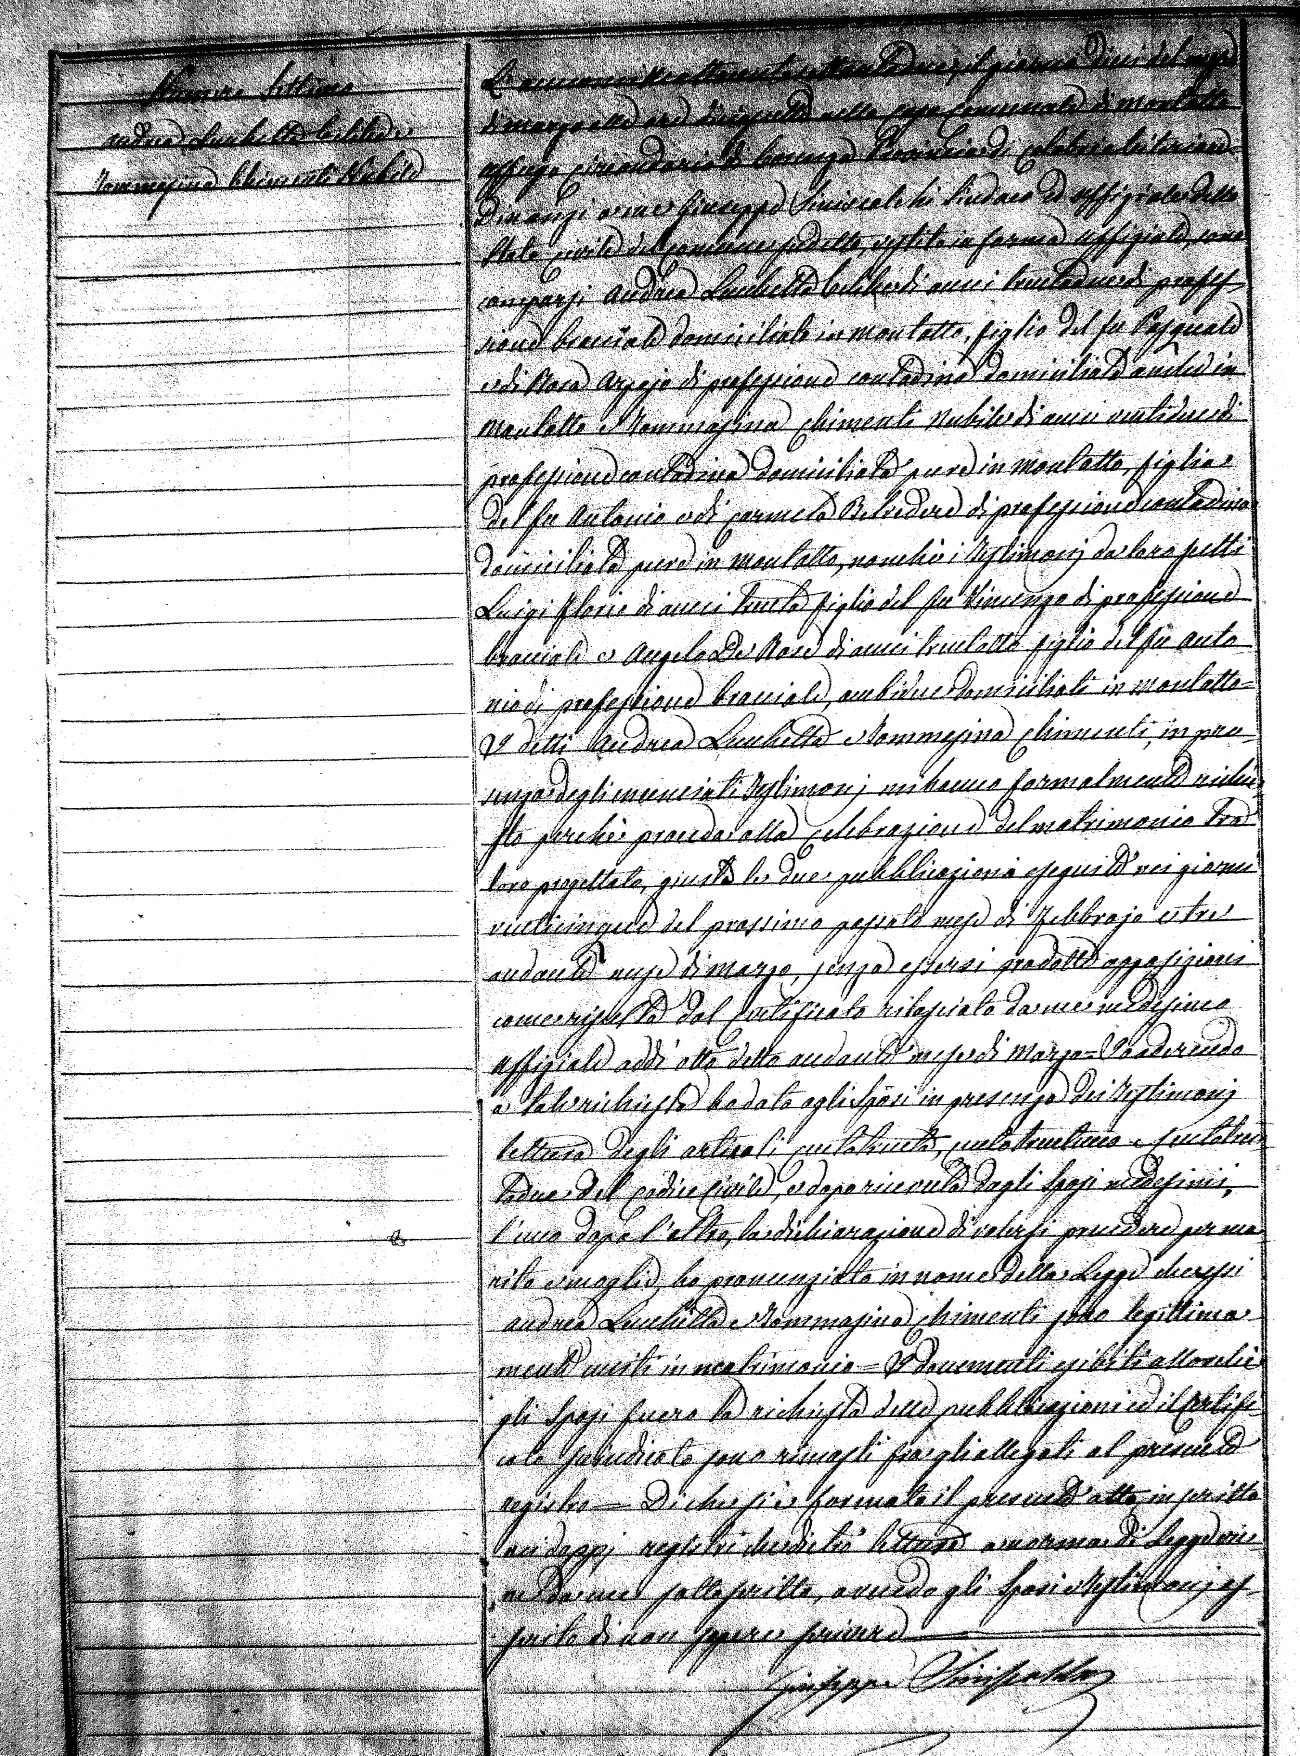 Numero Settimo
Andrea Luchetta Celibe e
Tommasina Chimenti Nubile
L'anno mille ottocento settantadue, il giorno dieci del mese
di marzo alle ore diciasette nella casa comunale di Montalto
Uffugo circondario di Cosenza Provincia di Calabria Citeriore
Dinanzi a me Giuseppe Siniscalchi Sindaco ed uffiziale dello
Stato civile del comune sudetto, vestito in forma uffiziale, sono
comparsi Andrea Luchetta Celibe di anni trentadue di profes
sione bracciale domiciliato in Montalto, figlio del fu Pasquale
e di Rosa di professione contadina domiciliata anche in
Montalto e Tommasina Chimenti Nubile di anni ventidue di
professione contadina domiciliata pure in Montalto, figlia
del fu Antonio e di Carmela Belvedere di professione contadina
domiciliata pure in Montalto, nonchè i Testimonj da loro scelti
Luigi Florio di anni trenta figlio del fu Vincenzo di professione
bracciale e Angelo De Rose di anni trentotto figlio del fu Anto
nio di professione bracciale, ambidue domiciliati in Montalto =
I detti Andrea Luchetta e Tommasina Chimenti, in pre
senza degli enunciati Testimonj mi hanno formalmente richie
sto perchè proceda alla celebrazione del matrimonio tra
loro progettato, giusta le due pubblicazioni eseguite nei giorni
venticinque del prossimo passato mese di Febbrajo e tre
andante mese di marzo, senza essersi prodotta opposizioni
come risulta dal certificato rilasciato da me medesimo
uffiziale addì otto detto andante mese di Marzo =
a tale richiesta ho dato agli Sposi in presenza dei Testimonj
lettura degli articoli centotrenta, centotrentuno e centotren
tadue del codice civile, e dopo ricevuta dagli sposi medesimi,
l'uno dopo l'altro, la dichiarazione di volersi prendere per ma
rito e moglie, ho pronunziato in nome della Legge che essi
Andrea Luchetta e Tommasina Chimenti sono legittima
mente uniti in matrimonio = I documenti esibiti allorchè
gli sposi fecero la richiesta delle pubblicazioni ed il certifi
cato sono rimasti fra gli allegati al presente
registro = Di che si è formato il presente atto inscritto
nei doppj registri che dietro lettura a norma di Legge vie
ne da me sottoscritto, avendo gli sposi e Testimonj as
serito di non sapere scrivere
Giuseppe Siniscalchi